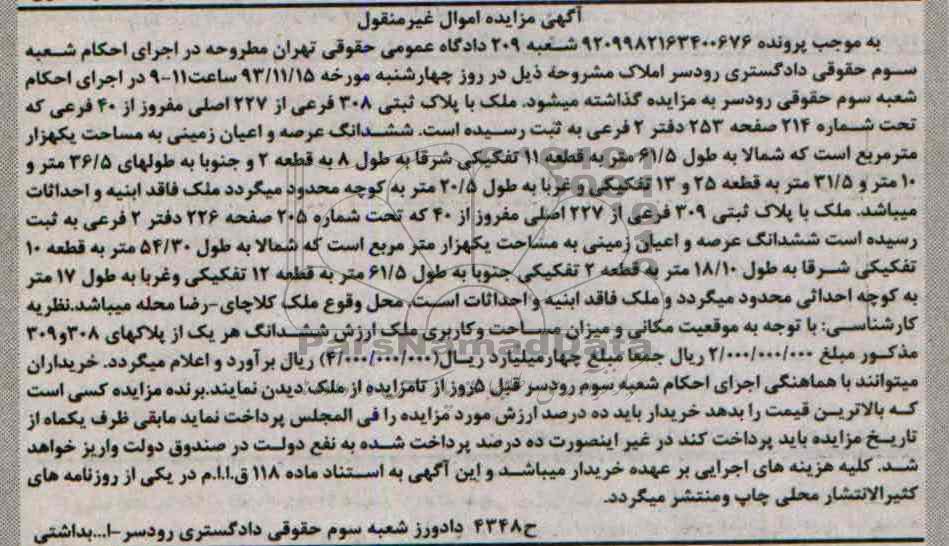 آگهی مزایده اموال غیرمنقول
به موجب پرونده ۹۲۰۹۹۸۲۱۶۳۴۰۰۶۷۶ شعبه ۲۰۹ دادگاه عمومی حقوقی تهران مطروحه در اجرای احکام شعبه
سوم حقوقی دادگستری رودسر املاک مشروحه ذیل در روز چهارشنبه مورخه ۹۳/۱۱/۱۵ ساعت۱۱-۹ در اجرای احکام
شعبه سوم حقوقی رودسر به مزایده گذاشته میشود. ملک با پلاک ثبتی ۳۰۸ فرعی از ۲۲۷ اصلی مفروز از ۴۰ فرعی که
تحت شماره ۲۱۴ صفحه ۲۵۳ دفتر ۲ فرعی به ثبت رسیده است. ششدانگ عرصه و اعیان زمینی به مساحت یکهزار
مترمربع است که شمالا به طول ۶۱/۵ متر به قطعه ۱۱ تفکیکی شرقا به طول ۸ به قطعه ۲ و جنوبا به طولهای ۳۶/۵ متر و
۱۰ متر و ۳۱/۵ متر به قطعه ۲۵ و ۱۳ تفکیکی و غربا به طول ۲۰/۵ متر به کوچه محدود میگردد ملک فاقد ابنیه و احداثات
میباشد. ملک با پلاک ثبتی ۳۰۹ فرعی از ۲۲۷ اصلی مفروز از ۴۰ که تحت شماره ۲۰۵ صفحه ۲۲۶ دفتر ۲ فرعی به ثبت
رسیده است ششدانگ عرصه و اعیان زمینی به مساحت یکهزار متر مربع است که شمالا به طول ۵۴/۳۰ متر به قطعه ۱۰
تفکیکی شرقا به طول ۱۸/۱۰ متر به قطعه ۲ تفکیکی جنوبا به طول ۶۱/۵ متر به قطعه ۱۲ تفکیکی وغربا به طول ۱۷ متر
به کوچه احداثی محدود میگردد و ملک فاقد ابنیه و احداثات است. محل وقوع ملک کلاچای-رضا محله میباشد.نظریه
کارشناسی: با توجه به موقعیت مکانی و میزان مساحت وکاربری ملک ارزش ششدانگ هر یک از پلاکهای ۳۰۸و۳۰۹
مذکور مبلغ ۲/۰۰۰/۰۰۰/۰۰۰ ریال جمعا مبلغ چهارمیلیارد ریال(۴/۰۰۰/۰۰۰/۰۰۰) ریال برآورد و اعلام میگردد. خریداران
میتوانند با هماهنگی اجرای احکام شعبه سوم رودسر قبل ۵روز از تامزایده از ملک دیدن نمایند.برنده مزایده کسی است
که بالاترین قیمت را بدهد خریدار باید ده درصد ارزش مورد مزایده را فی المجلس پرداخت نماید مابقی ظرف یکماه از
تاریخ مزایده باید پرداخت کند در غیر اینصورت ده درصد پرداخت شده به نفع دولت در صندوق دولت واریز خواهد
شد. کلیه هزینه های اجرایی بر عهده خریدار میباشد و این آگهی به استناد ماده ۱۱۸ ق.ا.ا.م در یکی از روزنامه های
کثیرالانتشار محلی چاپ ومنتشر میگردد.
ح۴۳۴۸ دادورز شعبه سوم حقوقی دادگستری رودسر-ا...بداشتی
ParsNamadData